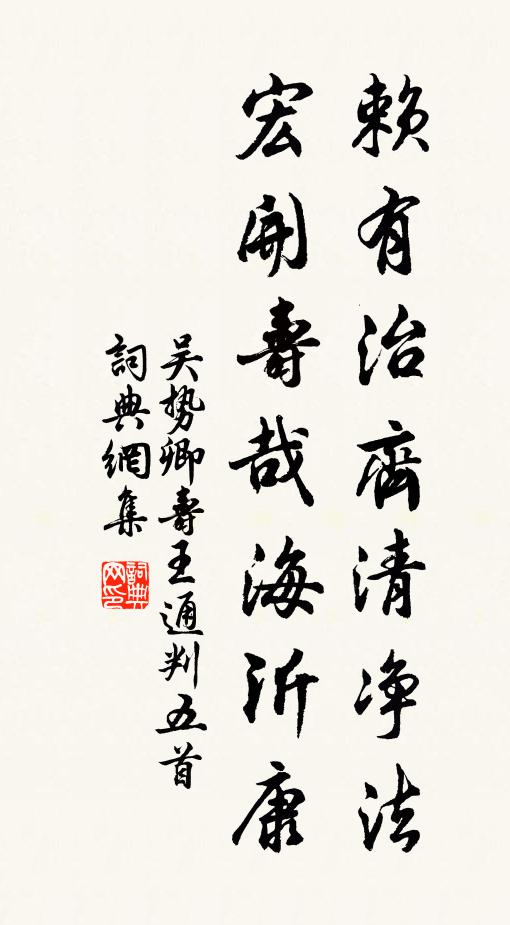 賴有治齊清净法
宏開壽哉海沂康
吴势卿壽王通判五首
詞典網集
詞典
网印